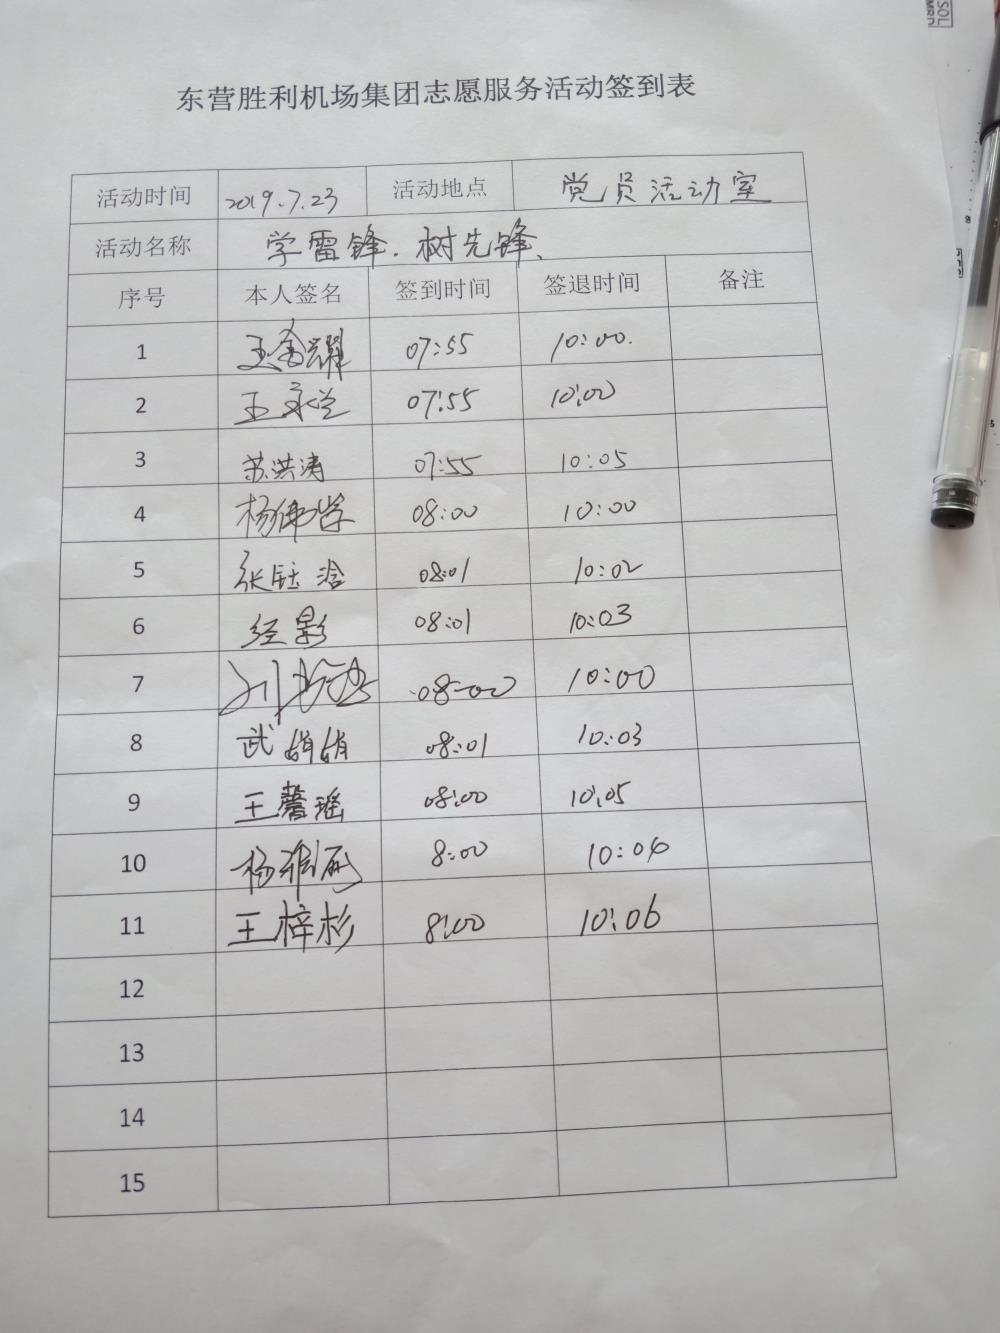 东营胜利机场集团志愿服务活动签到表
活动时间 2019.7.23 活动地点 党员活动室
活动名称 学雷锋.树先锋、
序号 本人签名 签到时间 签退时间 备注
1 王金耀 07:55 10:00.
2 王永兰 07:55 10:00
3 苏洪涛 07:55 10:05
4 杨佛学 08:00 10:00
5 张钰浛 08:01 10:02
6 经影 08:01 10:03
7 08:00 10:00
8 武娟娟 08:01 10:03
9 王馨瑶 08:00 10:05
10 杨雅 8:00 10:04
11 王梓杉 8:00 10:06
12
13
14
15